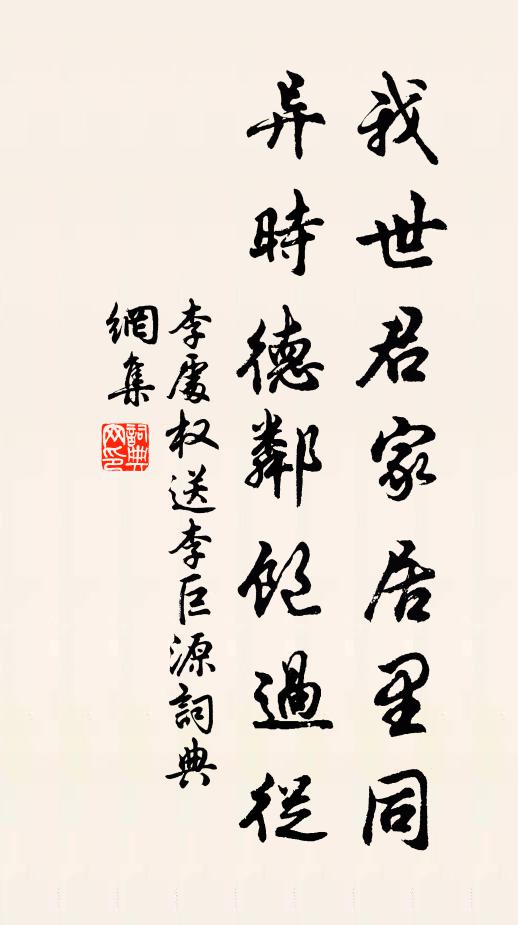 我世君家居里同
异時德鄰飽過從
李處权送李巨源詞典
網集
詞典
网印